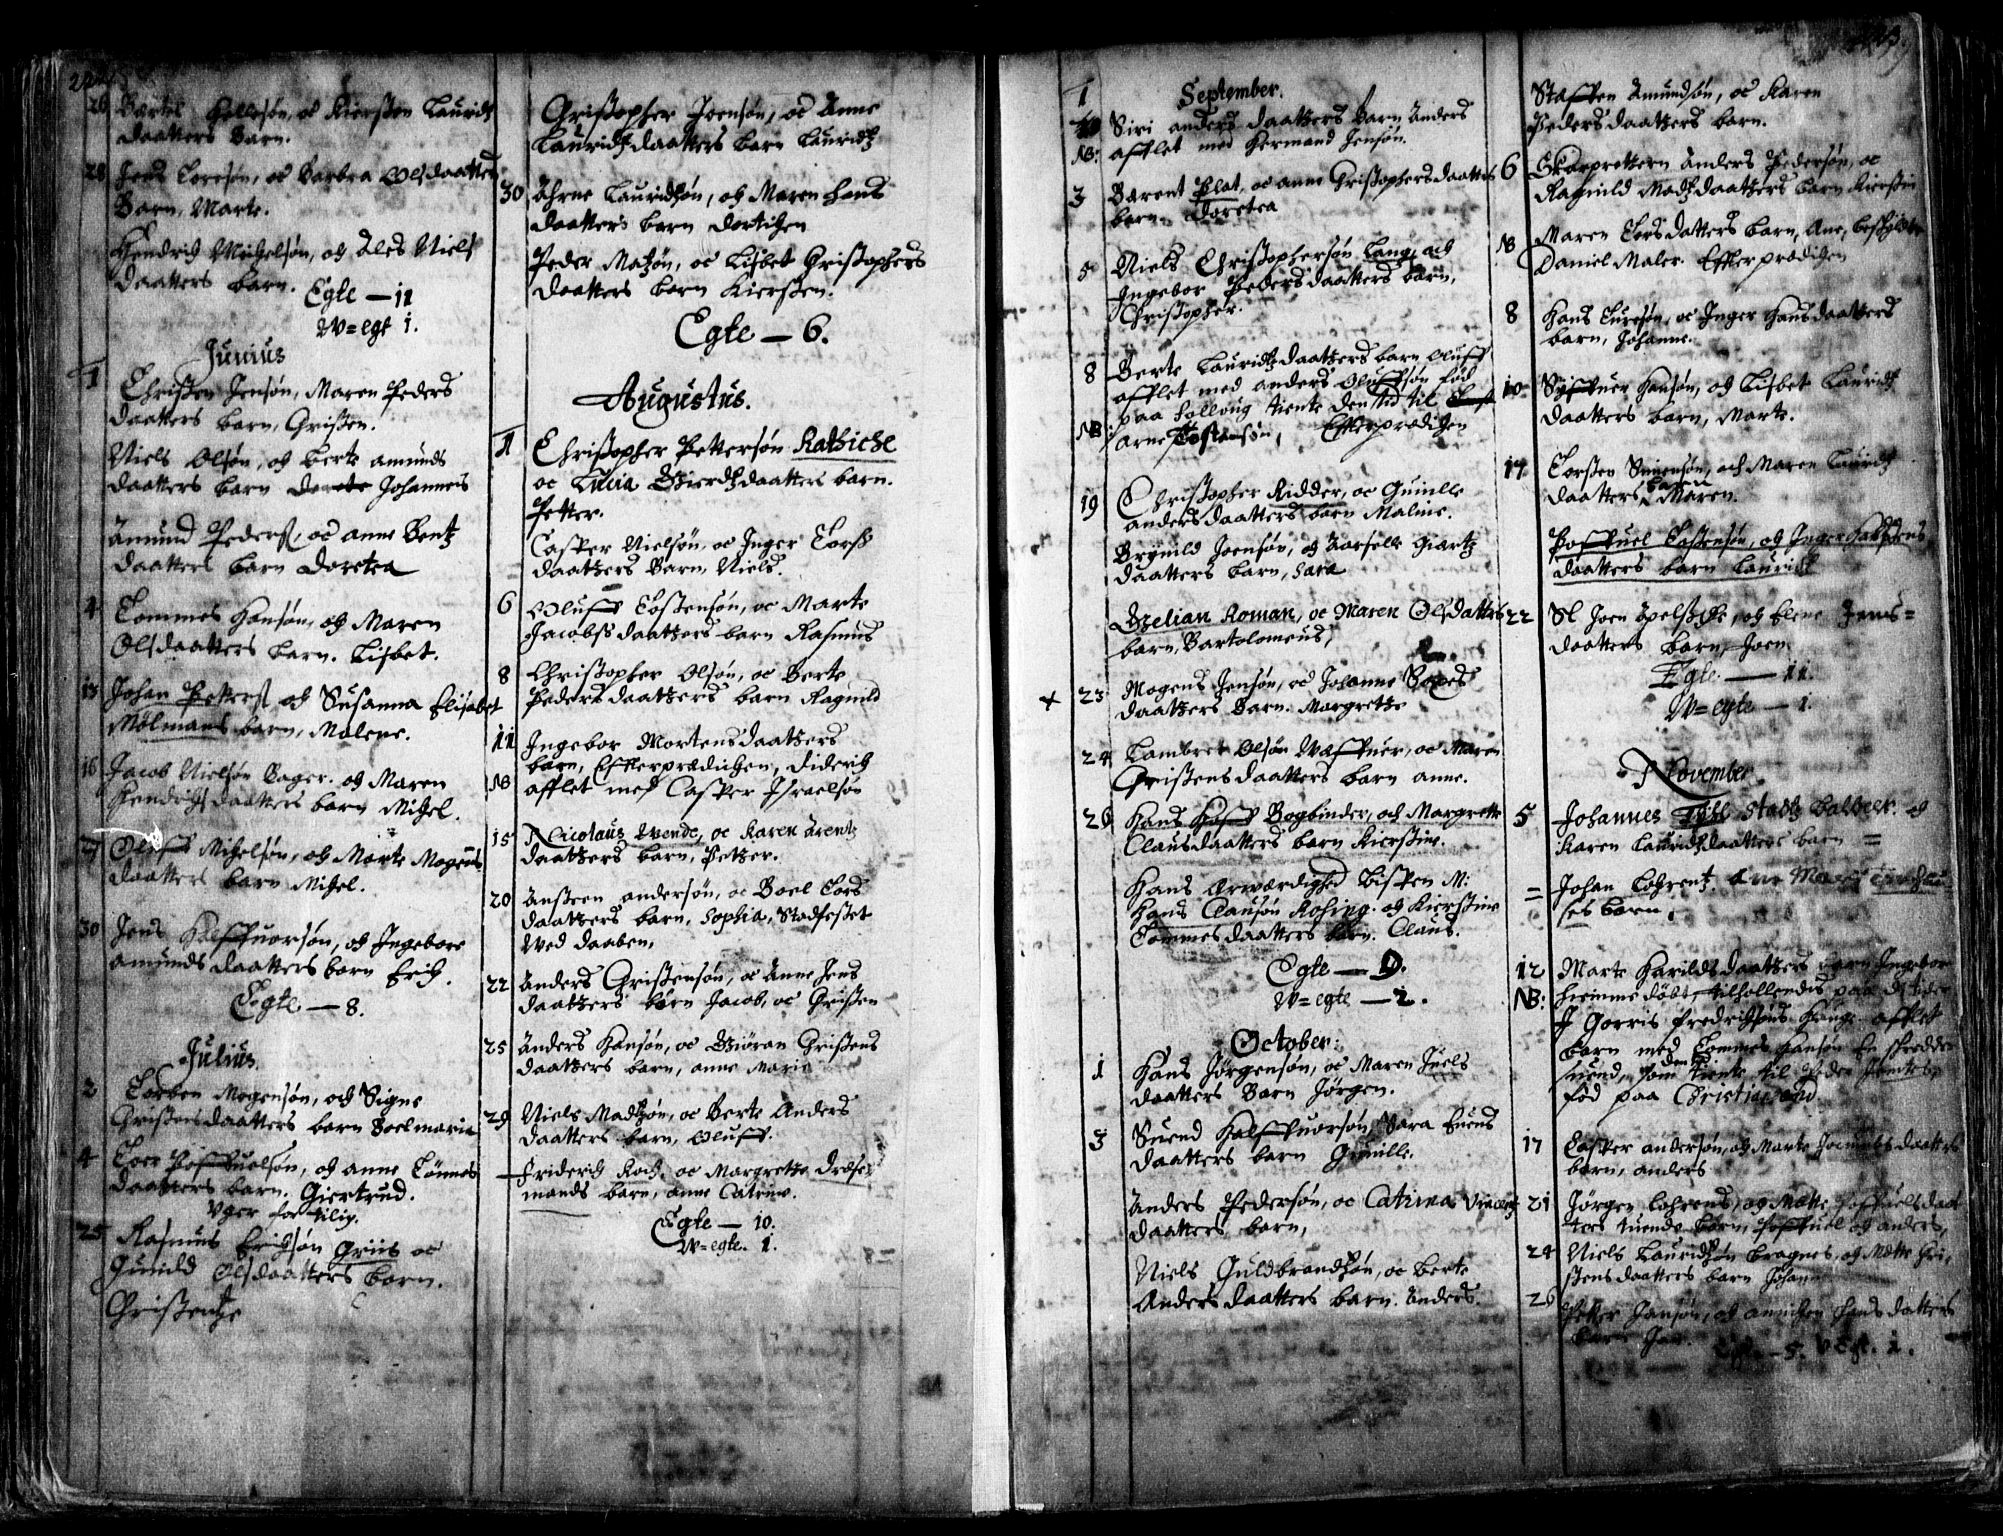 26 Bertel Hellesøn, oc Kiersten Lauridtz
daatters Barn.
28 Jens Toresøn, oc Barbra Olsdaatters
Barn, Marte.
Hendrich Michelsøn, och Ales Niels
daatters barn.
Egte — 11
W=egt 1.
Junius
1 Christen Jensøn, Maren Peders
daatters barn, Christen.
Niels Olsøn, och Berte Amunds
daatters barn Johannes
Amund Peders, oc Anne Bentz
daatters barn Doretea
4 Tommes Hansøn, och Maren
Olsdaatters barn. Lisbet.
13 Johan Petters och Susanna Elisabet
Mølmans barn, Malene.
16 Jacob Nielsøn Bager. och Maren
Hendrichs daatters barn Michel.
27 Oluff Michelsøn, och Marte Mogens
daatters barn Michel.
30 Jens Halffuorsøn, och Ingeborre
Amunds daatters barn Erich.
Egte — 8.
Julius.
2 Torben Mogensøn, och Signe
Christens daatters barn Boel maria
4 Tore Poffuelsøn, och anne Tønnes
daatters barn. Giertrud.
Uger for tilig.
25 Rasmus Erichsøn Griis oc
Gunild Olsdaatters barn.
Christentze
Christopher Joensøn, oc Anne
Lauridtzdaatters barn Lauridtz
30 Ahrne Lauridtzøn, och Maren Hans
daatters barn Dortichen
Peder Matzøn, oc Lisbet Christophers
daatters barn Kiersten.
Egte — 6.
Augustus.
1 Christopher Pettersøn Kathiche
oc Lucia Gierdtzdaatters barn.
Petter.
Casper Nielsøn, oc Inger Tors
daatters Barn, Niels.
6 Oluff Tostensøn, oc Marte
Jacobss daatters barn Rasmus
8 Christopher Olsøn, oc Berte
Peders daatters barn Ragnild
11 Ingebor Mortensdaatters
barn, Effterprædichen, Diderich
NB afflet med Casper Israelsøn
15 Nicolaus Wende, oc Karen Arentz
daatters barn, Petter.
20 Ansteen Andersøn, oc Boel Tors
daatters barn, Sophia, Stadfestet
Ved daaben,
22 Anders Christensøn, oc Anne Jens
daatters børn Jacob, oc Christen
25 Anders Hansøn, oc Giøran Christens
daatters barn, anne Marie
29 Niels Madtzøn, oc Berte Anders
daatters barn, Oluff.
Friderich Koch, oc Margrette Dræse
mands barn, anne Catrine.
Egte — 10.
W=egte. 1.
September.
1 Siri anders daatters Barn Anders
NB: afflet med Hermand Jensøn.
3 Barent Plat, oc anne Christophersdaatters
barn. Doretea
5 Niels Christophersøn Lang, och
Ingebor Peders daatters barn,
Christopher.
8 Berte Lauridtzdaatters barn Oluff
afflet med anders Oluffsøn fød
paa tiente den tid til
NB: arne Tostensøn, Effterprædichen
19 Christopher Ridder, oc Gunille
anders daatters barn Maline.
Brynild Joensøn, och Aaselle Giartz
daatters barn, Sara
Gelian Roman, oc Maren Olsdatters
barn, Bartolomeus,
x 23 Mogens Jensøn, oc Johanne
daatters Barn. Margrette
24 Lambret Olsøn Wæffuer, oc Maren
Christens daatters barn anne.
26 Hans Hoff Bogbinder, och Margrette
Claus daatters barn Kierstine.
Hans Ærwærdighed Bispen M:
Hans Clausøn Rosing. och Kierstine
Tommes daatters barn. Claus.
Egte — 9.
W=egte — 2.
October:
1 Hans Jørgensøn, oc Maren Juels
daatters Barn Jørgen.
3 Suend Halffuorsøn, Sara Suens
daatters barn Gunille.
Anders Pedersøn, oc Catrina Vincentz
daatters barn,
Niels Guldbrandtzøn, oc Berte
Anders daatters barn. Anders.
Staffen Amundsøn, oc Karen
Peders daatters barn.
6 Skarprettern Anders Pedersøn, oc
Ragnild Madtz daatters barn Kierstin
NB Maren Tors datters barn, Ane,
Daniel Maler. Effterprædichen
8 Hans Turesøn, oc Inger Hans daatters
barn, Johanne.
10 Syffuer Hansøn, och Lisbet Lauridtz
daatters barn, Marte.
14 Torsten Simensøn, och Maren Lauridtz
daatters barn Maren.
Poffuel Tostensøn, och Inger
daatters barn Lauridtz
22 Sl Joen och Elene Jens=
daatters barn, Joen
Egte — 11.
W=egte — 1.
November
5 Johannes Stadtz Balbeer. och
Karen Lauridtzdaatters barn =
= Johan Lohrentz.
ses barn.
12 Marte Harilds daatters barn Ingebor
NB: hiemme døbt, tilhollendis paa
J Gorris Fredrichsens afflet
barn med Tommes Hansøn En skredder
suend, som den tid tiente til Peder
fød paa Christiansand.
17 Casper andersøn, och Marte daatters
barn, anders
21 Jørgen Lohrens, och Mette Poffuels daat
ters tuende børn, Poffuel och anders,
24 Niels Lauridtzøn Bragnes, och Mette Chri
stens daatters barn Johan
26 Petter Jansøn, och Annichen Hans datters
barn Jan. Egte — 5. VEgt. 1.